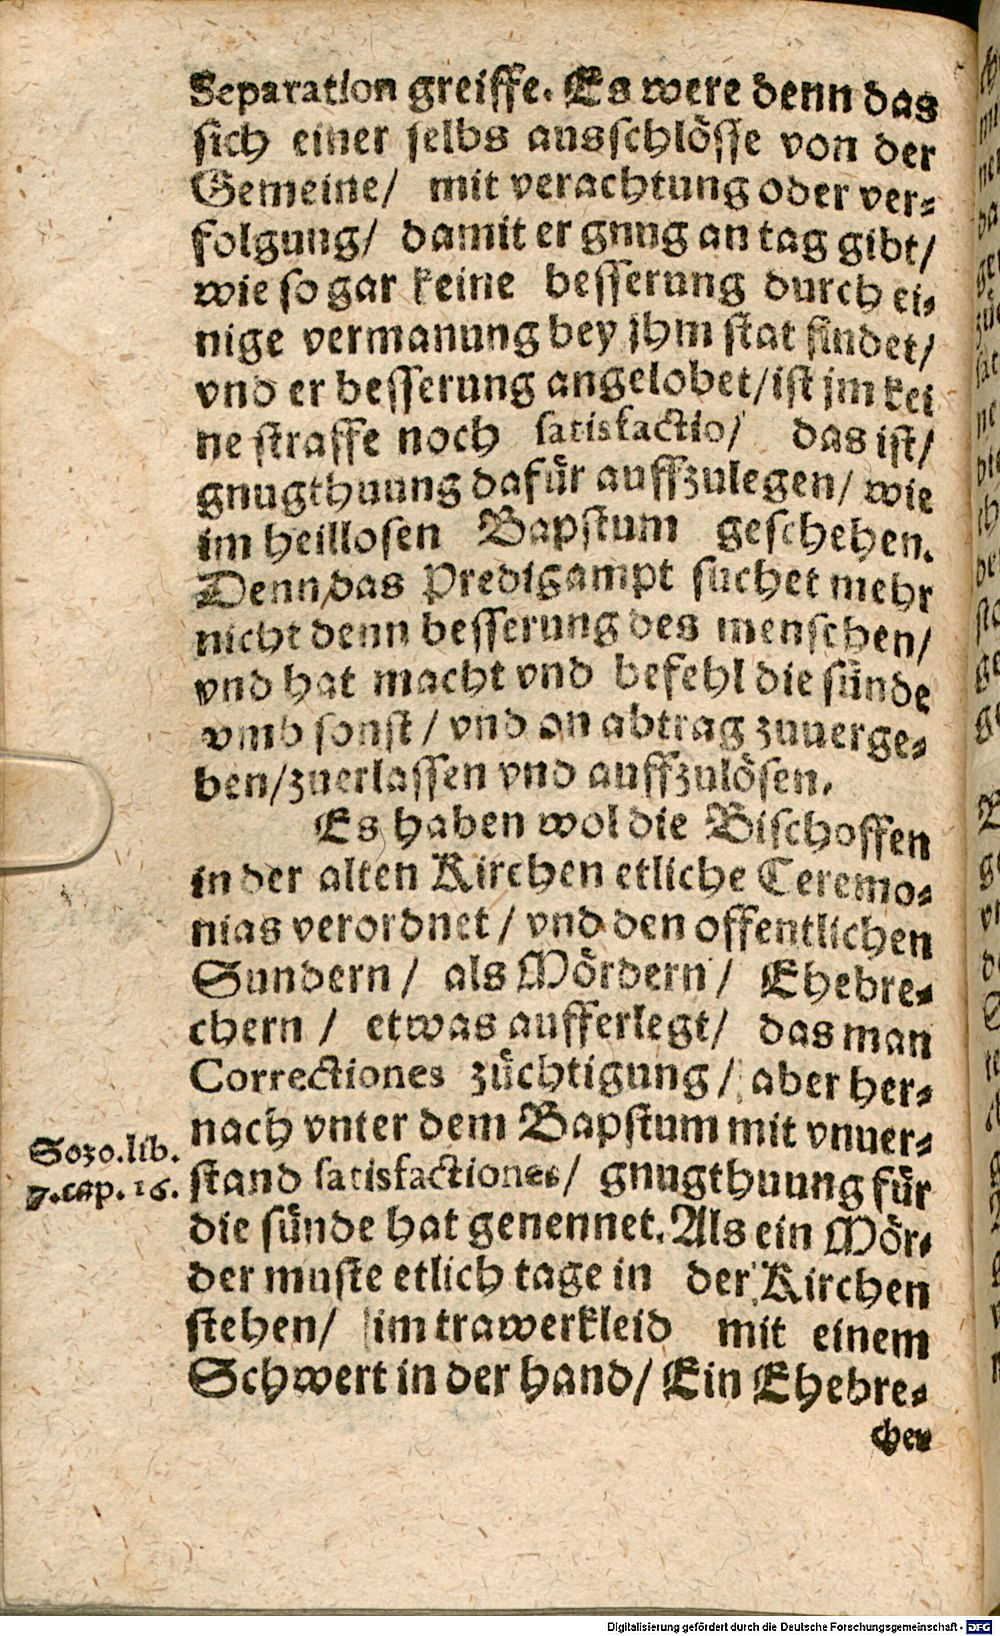 Separation greiffe. Es were denn das
sich einer selbs ausschlösse von der
Gemeine/ mit verachtung oder ver-
folgung/ damit er gnug an tag gibt/
wie so gar keine besserung durch ei-
nige vermanung bey jhm stat findet/
vnd er besserung angelobet/ist jm kei
ne straffe noch satisfactio/ das ist/
gnugthuung dafür auffzulegen/ wie
im heillosen Bapstum geschehen.
Denn das Predigampt suchet mehr
nicht denn besserung des menschen/
vnd hat macht vnd befehl die sünde
vmb sonst / vnd on abtrag zuuerge-
ben/zuerlassen vnd auffzulösen.
Es haben wol die Bischoffen
in der alten Kirchen etliche Ceremo-
nias verordnet / vnd den offentlichen
Sundern / als Mördern / Ehebre-
chern / etwas aufferlegt/ das man
Correctiones züchtigung / aber her-
nach vnter dem Bapstum mit vnuer-
Sozo.lib.
7.cap.16.
stand satisfactiones/ gnugthuung für
die sünde hat genennet. Als ein Mör-
der muste etlich tage in der Kirchen
stehen/ im trawerkleid mit einem
Schwert in der hand/ Ein Ehebre-
cher
Digitalisierung gefördert durch die Deutsche Forschungsgemeinschaft - DFG